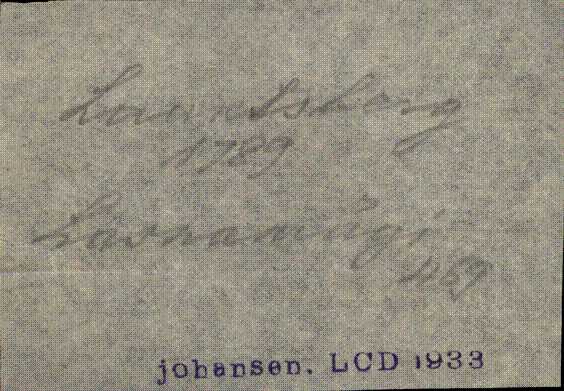 Launtsberg
1789
Lasnamägi
johansen. LCD 1933